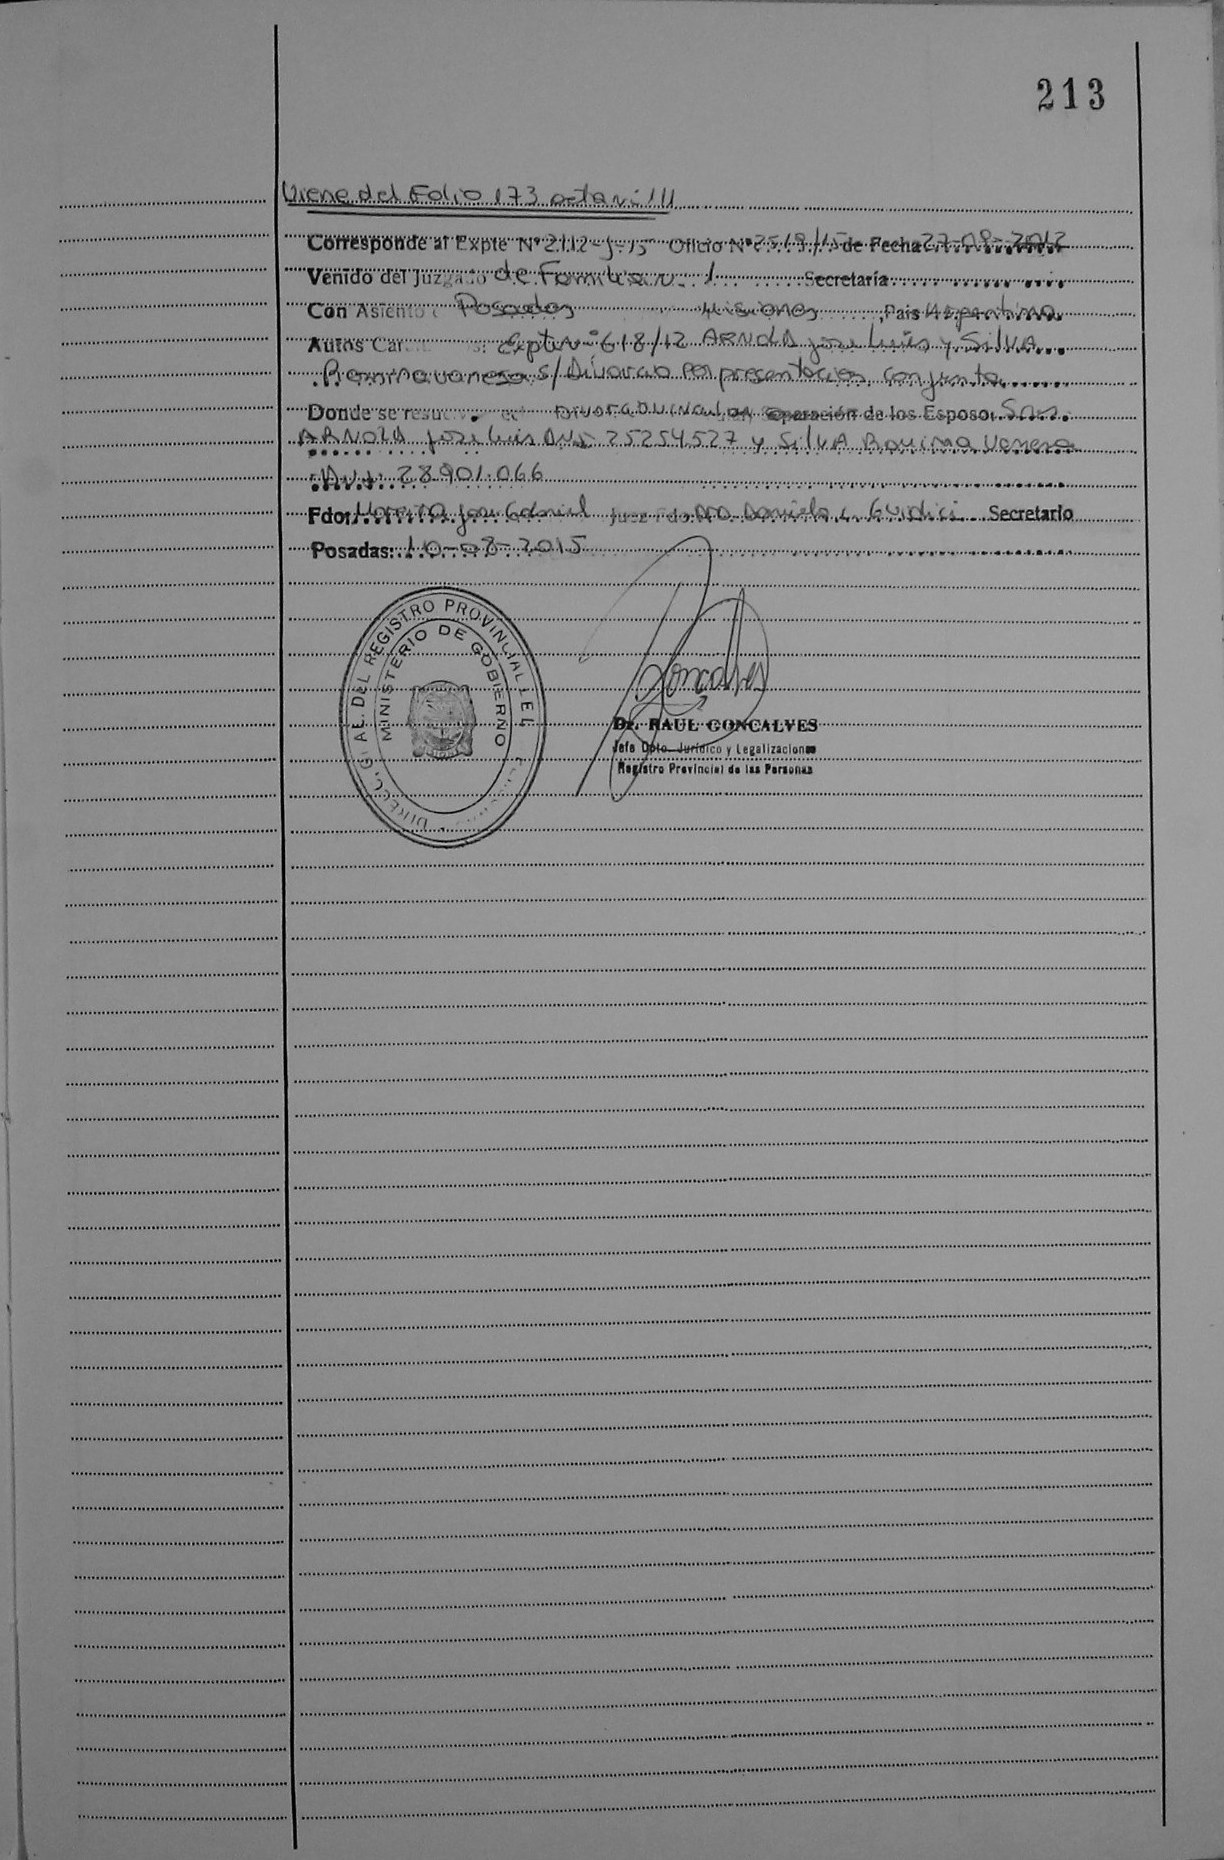 213
Viene del Folio 173
Corresponde al Expte Nº 2112-J-15 Oficio Nº de Fecha 27-08-2012
Venido del Juzgado de Familia N. 1 Secretaría
Con Asiento Posadas Misiones, País Argentina
Autos Expte Nº 618/12 ARNOLD Jose Luis y SILVA
Vanesa s/ Divorcio por presentacion conjunta
Donde se Divorcio Vincular de los Esposos
ARNOLD Jose Luis D.N.I. 25254527 y SILVA Vanesa
D.N.I. 28.901.066
Fdo. Jose Gabriel Juez Fdo. Dra Daniela Guidici Secretario
Posadas: 10-08-2015
DEL REGISTRO PROVINCIAL
MINISTERIO DE GOBIERNO
Goncalves
Dr. RAUL GONCALVES
Jefe Dpto. Jurídico y Legalizaciones
Registro Provincial de las Personas